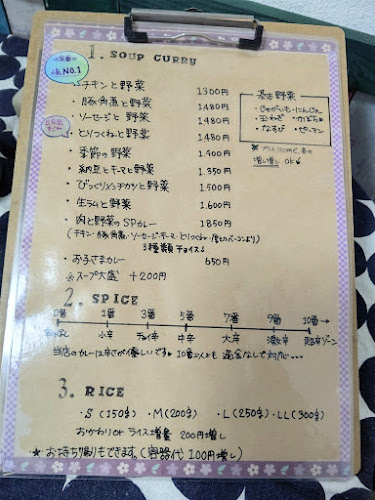 1. SOUP CURRY
人気No.1
チキンと野菜 1300円
・豚角煮と野菜 1,480円
・ソーセージと野菜 1,480円
・とりつくねと野菜 1,480円
・季節の野菜 1,400円
・納豆とキーマと野菜 1,350円
・びっくりメンチカツと野菜 1,500円
・生ラムと野菜 1,600円
・肉と野菜のSPカレー 1850円
3種類チョイス↓
・お子さまカレー 650円
※スープ大盛 +200円
基本野菜
・じゃがいも・にんじん
・玉ねぎ ・かぼちゃ
・なすび ・ピーマン
2. SPICE
0番 1番 3番 5番 7番 9番 10番→
小辛 中辛 大辛 激辛 超辛ゾーン
当店のカレーは辛さが優しいです。10番以上も追金なしで対応…
3. RICE
・S (150g) ・M (200g) ・L (250g)・LL (300g)
おかわりor ライス増量 200円増し
★ お持ち帰りもできます。(容器代100円増し)